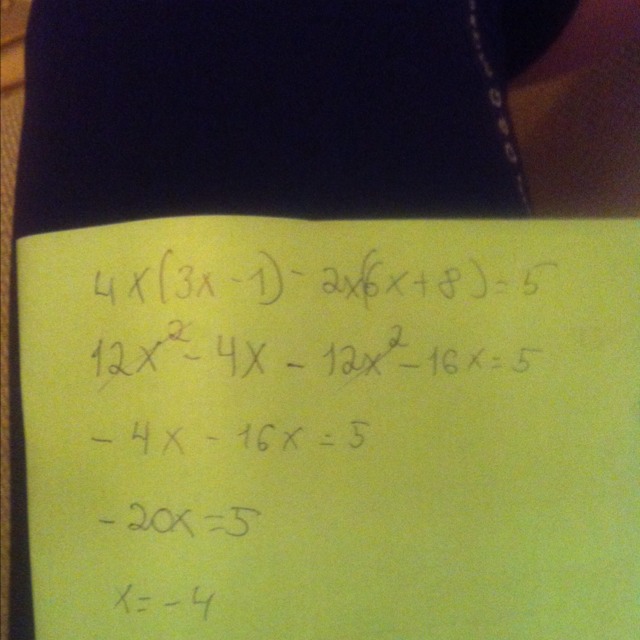 4x(3x-1)-2x(6x+8)=5
12x²-4x-12x²-16x=5
-4x-16x=5
-20x=5
x=-4